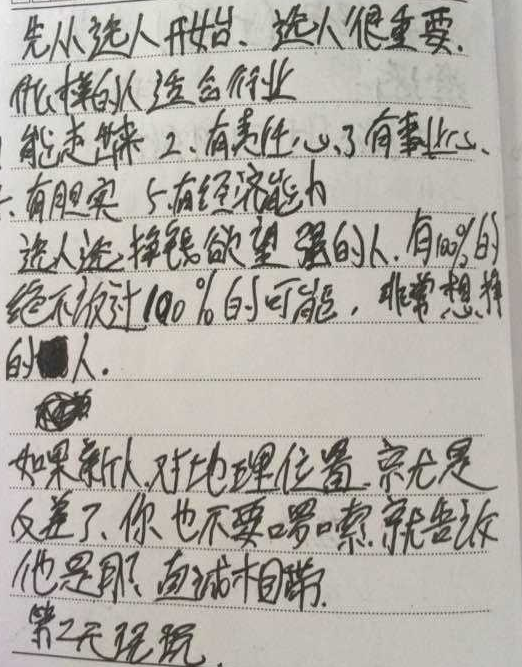 先从选人开始、选人很重要.
什么样的人适合行业
能走出来 2、有责任心、3 有事业心、
有胆实 5、有经济能力
选人选挣钱欲望强的人.有100%的
绝不放过100%的可能，非常想挣
的人.
如果新人.对地理位置.就是
反差了、你也不要啰嗦.就告诉
他是
第2天